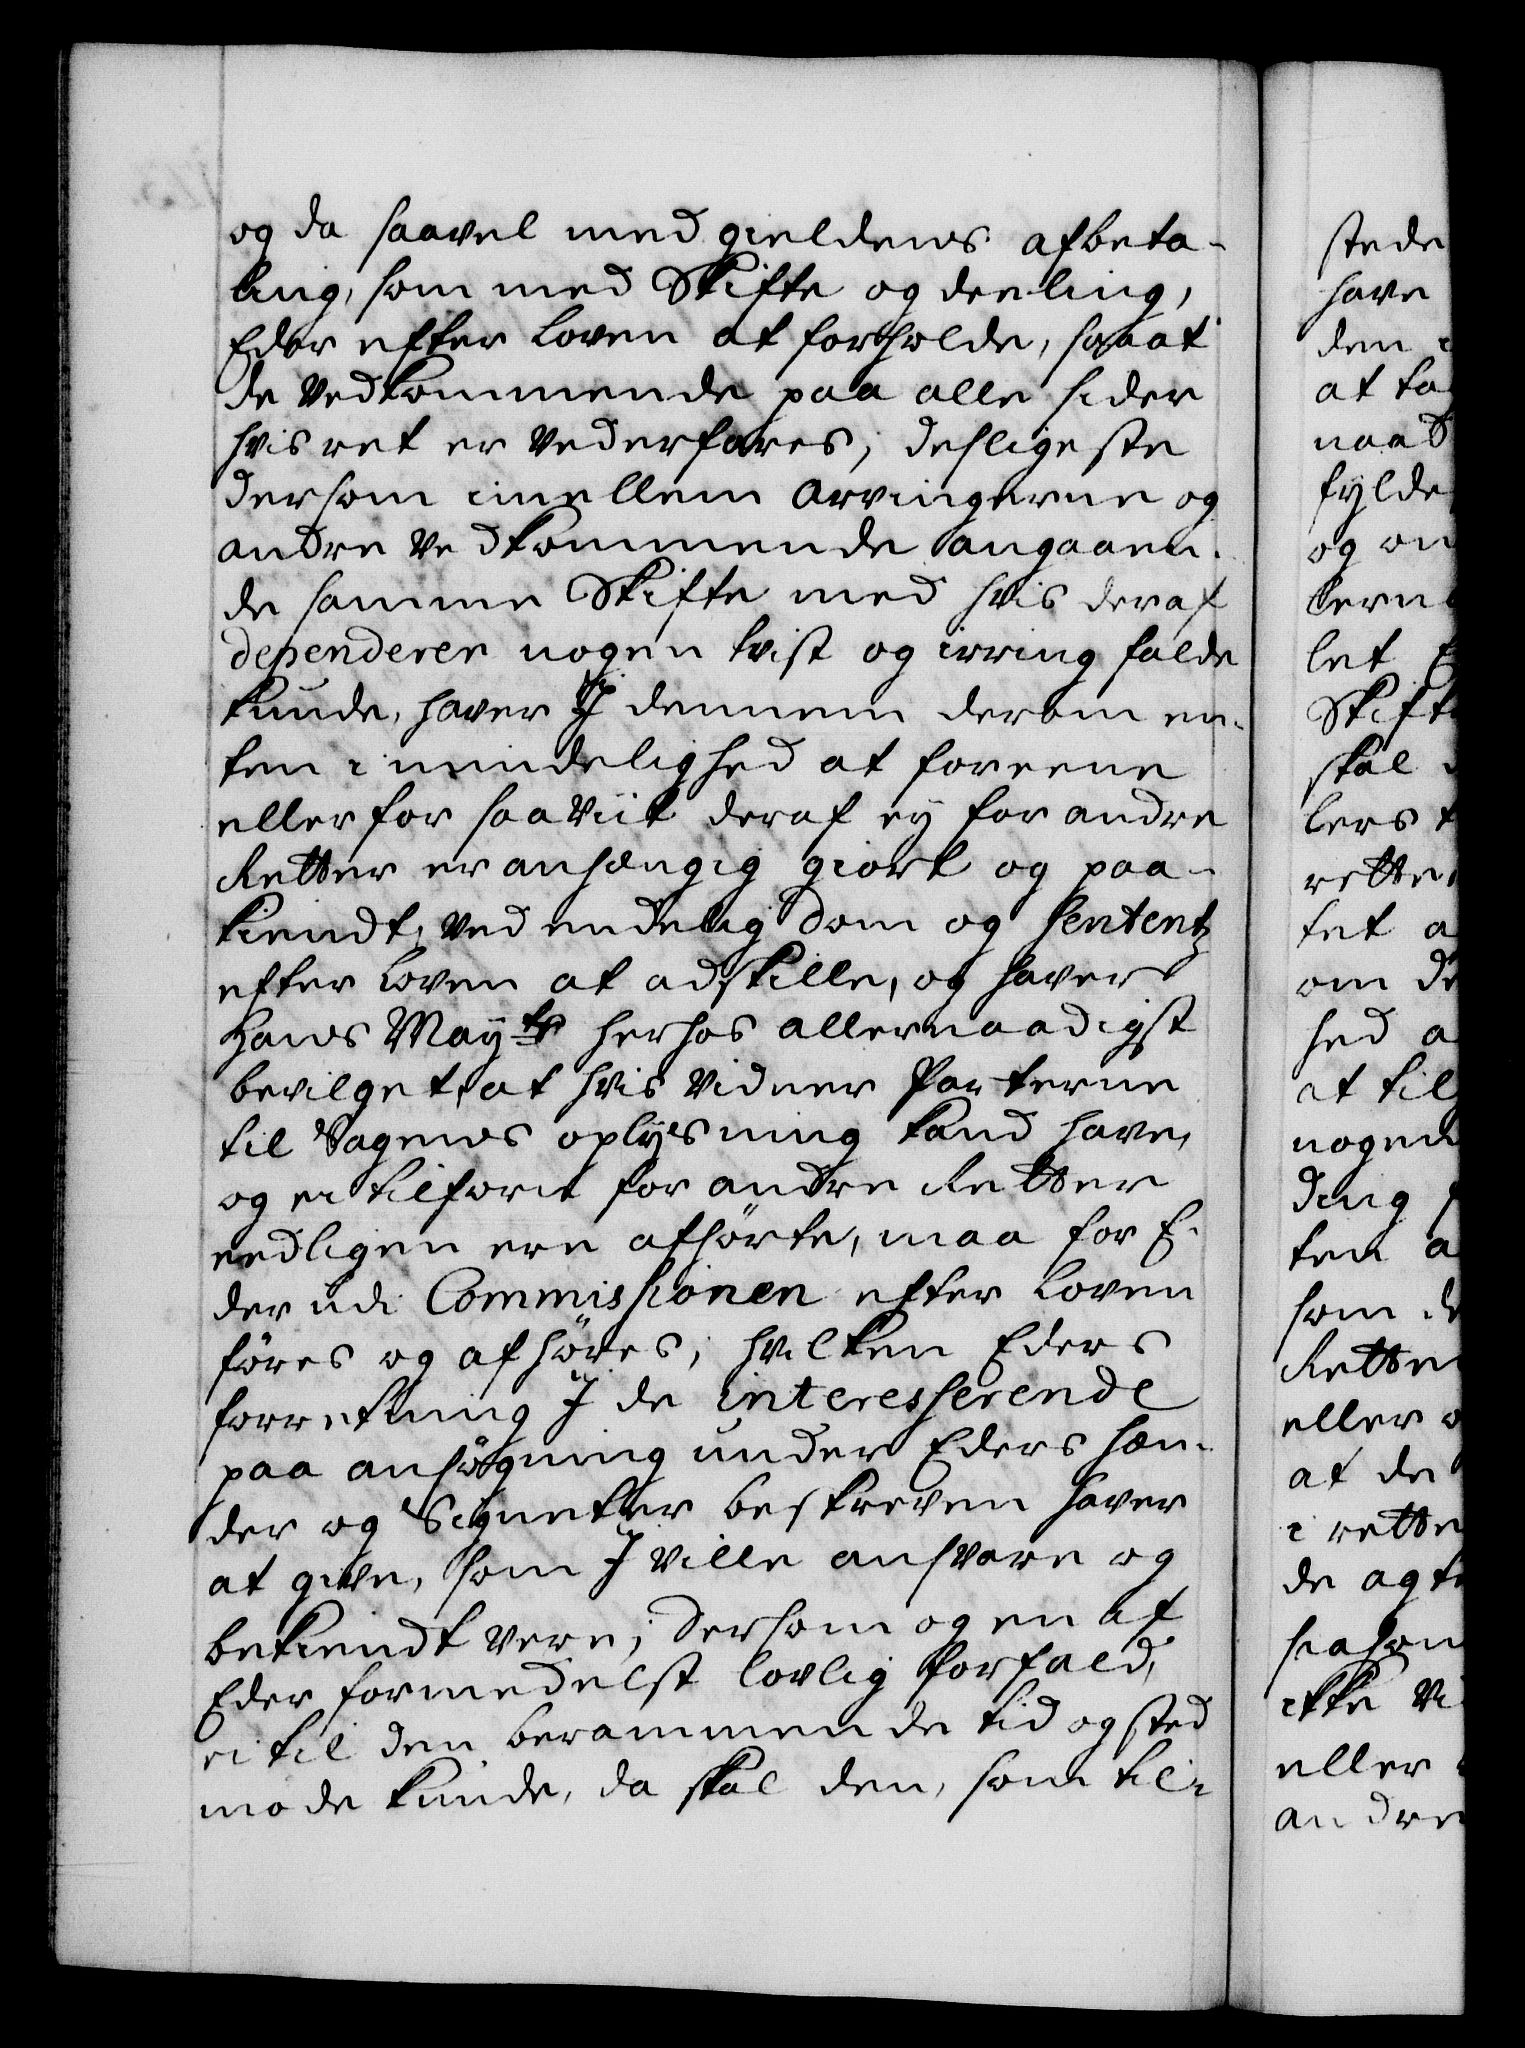 og da saavel med gieldens afbeta-
ling, som med Skifte og deeling,
Eder efter Loven at forholde, saa at
de Vedkommende paa alle sider
hvis ret er Vederfares; desligeste
dersom imellem Arvingerne og
andre Vedkommende angaaen-
de samme Skifte med hvis deraf
dependerer nogen tvist og irring falde
kunde, haver I dennem derom en-
ten i mindelighed at foreene
eller for saaviit deraf ey for andre
Retter er anhængig giort og paa-
kiendt, ved endelig Dom og Sententz
efter Loven at adskille, og haver
Hans Mayts herhos allernaadigst
bevilget, at hvis Vidner Parterne
til Sagens oplysning kand have,
og ei tilforn for andre Retter
eedligen ere afhørte, maa for E-
der udi Commissionen efter Loven
føres og afhøres; hvilken Eders
forretning I de interesserende
paa ansøgning under Eders hæn-
der og Signeter beskreven haver
at give, som I ville ansvare og
bekiendt vere; Dersom og en af
Eder formedelst lovlig forfald,
ei til den berammende tid og sted
møde kunde, da skal den, som til-
stede
have
den
at ta
naad
fylde
og on
lern
let E
Skift
skal
lers t
rette
tet a
om de
hed a
at til
nogen
ding
ten a
som
Rette
eller
at de
i rette
de agt
saasom
ikke Vi
eller
andre